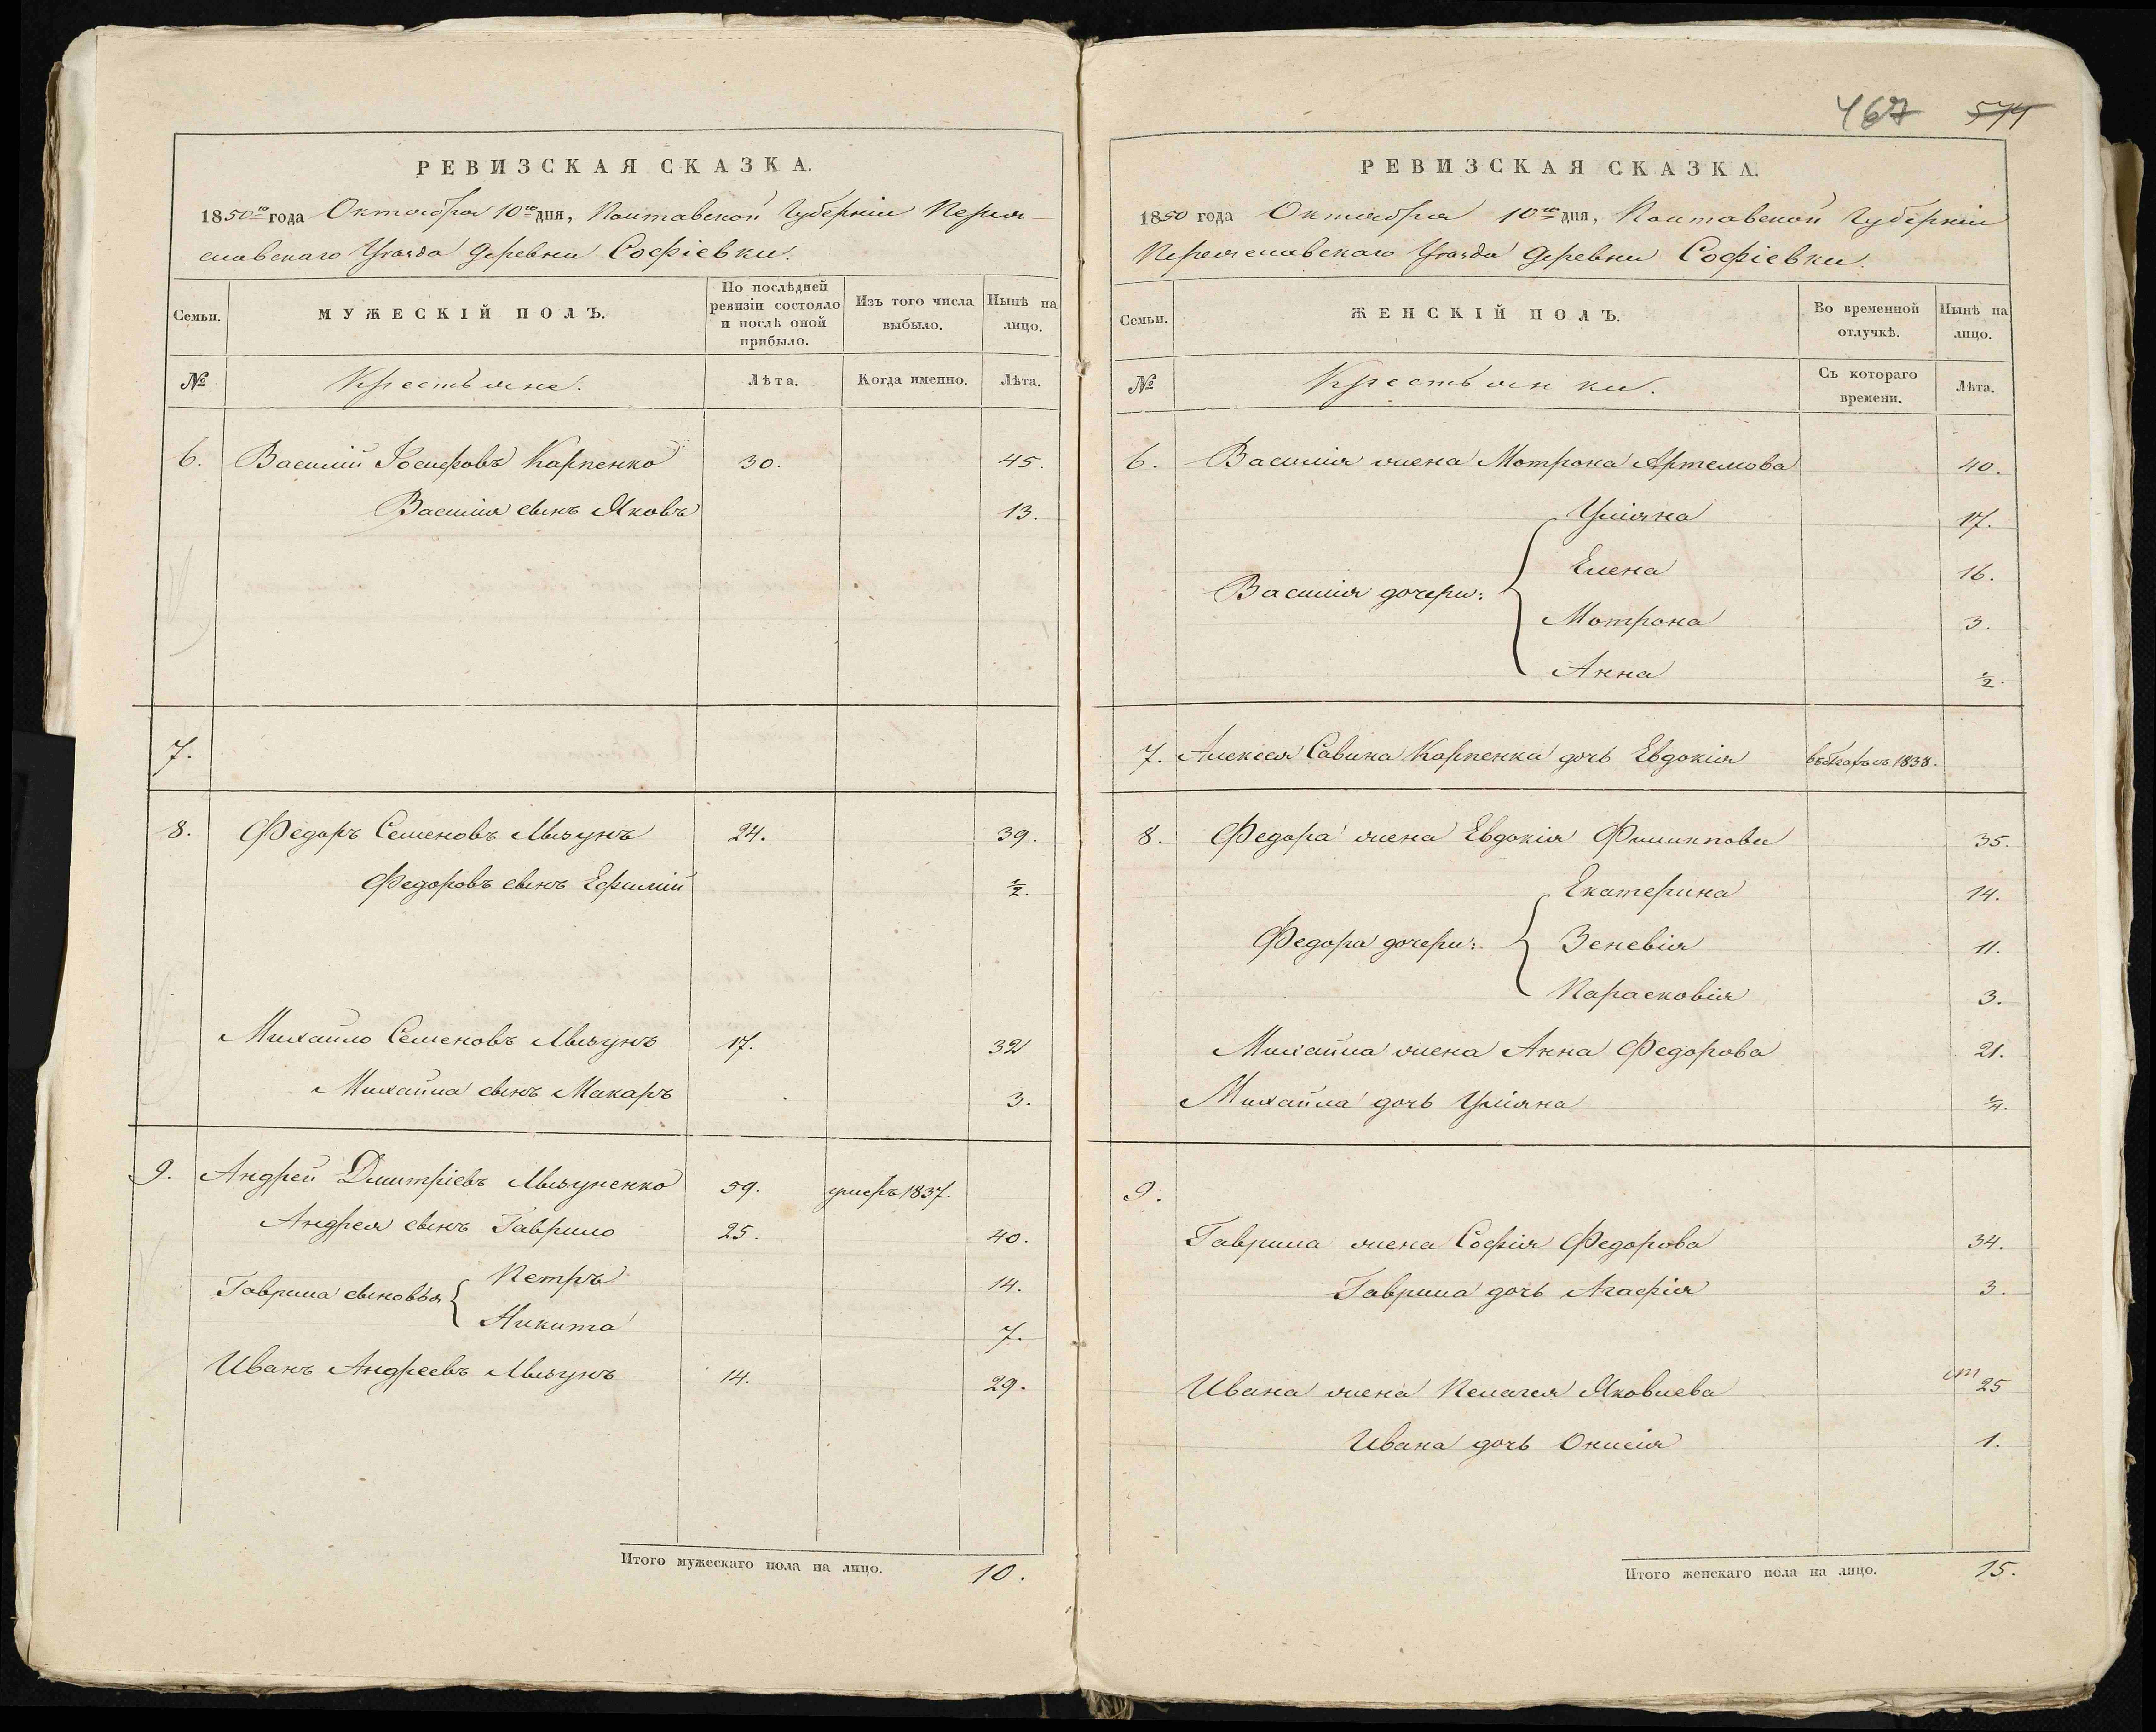 РЕВИЗСКАЯ СКАЗКА.
1850го года Октября 10го дня, Полтавской Губерніи Перея-
славскаго Уѣзда деревни Софіевки.
Семьи.
МУЖЕСКІЙ ПОЛЪ.
По послѣдней ревизіи состояло и послѣ оной прибыло.
Изъ того числа выбыло.
Нынѣ на лицо.
№
Крестьяне.
Лѣта.
Когда именно.
Лѣта.
6. Василий Іосифовъ Карпенко 30. 45.
Василія сынъ Яковъ 13.
7.
8. Федоръ Семеновъ Мызунъ 24. 39.
Федоровъ сынъ Ефимій ½.
Михайло Семеновъ Мызунъ 17. 32
Михайла сынъ Макаръ 3.
9. Андрей Дмитріевъ Мызуненко 59. умеръ 1837.
Андрея сынъ Гаврило 25. 40.
Гаврила сыновья
Петръ 14.
Никита 7.
Иванъ Андреевъ Мызунъ 14. 29.
Итого мужескаго пола на лицо. 10.
467 574
РЕВИЗСКАЯ СКАЗКА.
1850 года Октября 10го дня, Полтавской Губерніи
Переяславскаго Уѣзда деревни Софіевки.
Семьи.
ЖЕНСКІЙ ПОЛЪ.
Во временной отлучкѣ.
Нынѣ на лицо.
№
Крестьянки.
Съ котораго времени.
Лѣта.
6. Василія жена Мотрона Артемова 40.
Василія дочери:
Уліяна 17.
Елена 16.
Мотрона 3.
Анна ½.
7. Алексея Савина Карпенка дочь Евдокія въ бѣгахъ съ 1838.
8. Федора жена Евдокія Филиппова 35.
Федора дочери:
Екатерина 14.
Зеневія 11.
Парасковія 3.
Михайла жена Анна Федорова 21.
Михайла дочь Уліяна ¼.
9.
Гаврила жена Софія Федорова 34.
Гаврила дочь Агафія 3.
Ивана жена Пелагея Яковлева 25
Ивана дочь Онисія 1.
Итого женскаго пола на лицо. 15.